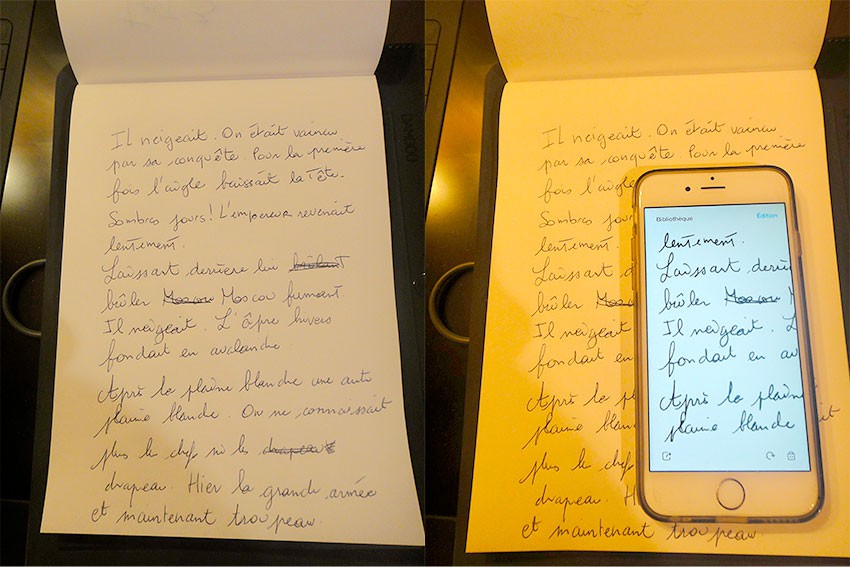 Il neigeait. On était vaincu
par sa conquête. Pour la première
fois l'aigle baissait la tête.
Sombres jours ! L'empereur revenait
lentement.
Laissant derrière lui
brûler Moscou Moscou fumant.
Il neigeait. L'âpre hivers
fondait en avalanche
Après la plaine blanche une autr
plaine blande. On ne connaissait
plus le chef ni les drapeaux
drapeau. Hier la grande armée
et maintenant troupeau.
BAMBOO
Il neigeait. On était vaincu
par sa conquête. Pour la première
fois l'aigle
Sombres jou
lentement.
Laissant d
brûler Moscou
Il neigeait
fondait en
Après la pl
plaine blan ait
plus le chef
drapeau. H
et maintenant troupeau.
Bibliothèque Édition
lentement.
Laissant derriè
brûler Moscou M
Il neigeait. L
fondait en ava
Après la plain
plaine blande